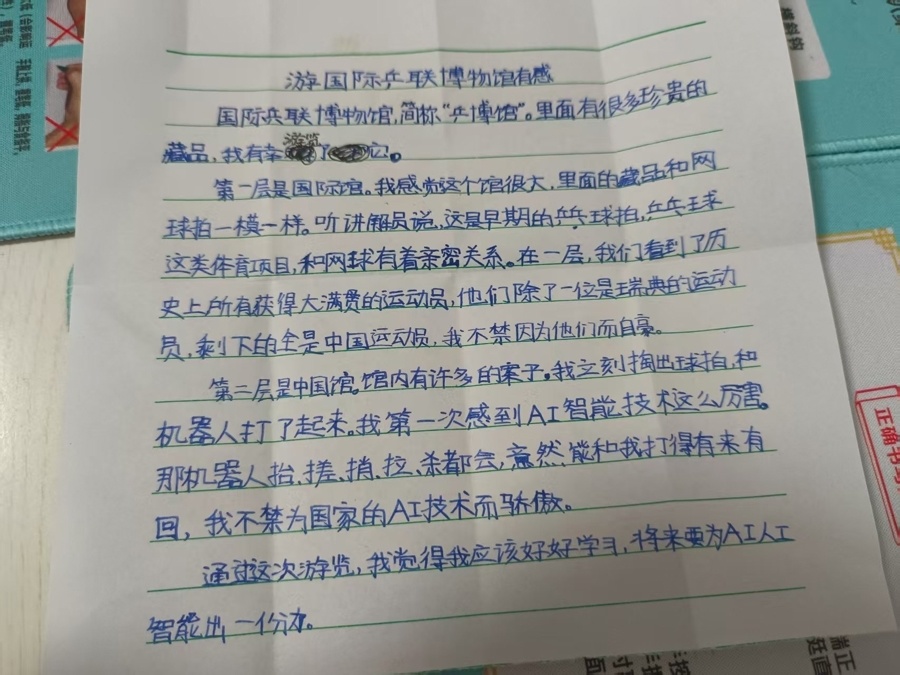 游国际乒联博物馆有感
国际乒联博物馆,简称“乒博馆”。里面有很多珍贵的
藏品,我有幸游览了它。
第一层是国际馆。我感觉这个馆很大,里面的藏品和网
球拍一模一样。听讲解员说,这是早期的乒乓球拍,乒乓球
这类体育项目,和网球有着亲密关系。在一层,我们看到了历
史上所有获得大满贯的运动员,他们除了一位是瑞典的运动
员,剩下的全是中国运动员,我不禁因为他们而自豪。
第二层是中国馆。馆内有许多的案子。我立刻掏出球拍,和
机器人打了起来。我第一次感到AI智能技术这么厉害。
那机器人抬、搓、捎、拉、杀都会,竟然能和我打得有来有
回,我不禁为国家的AI技术而骄傲。
通过这次游览,我觉得我应该好好学习,将来要为AI人工
智能出一份力。
正确书